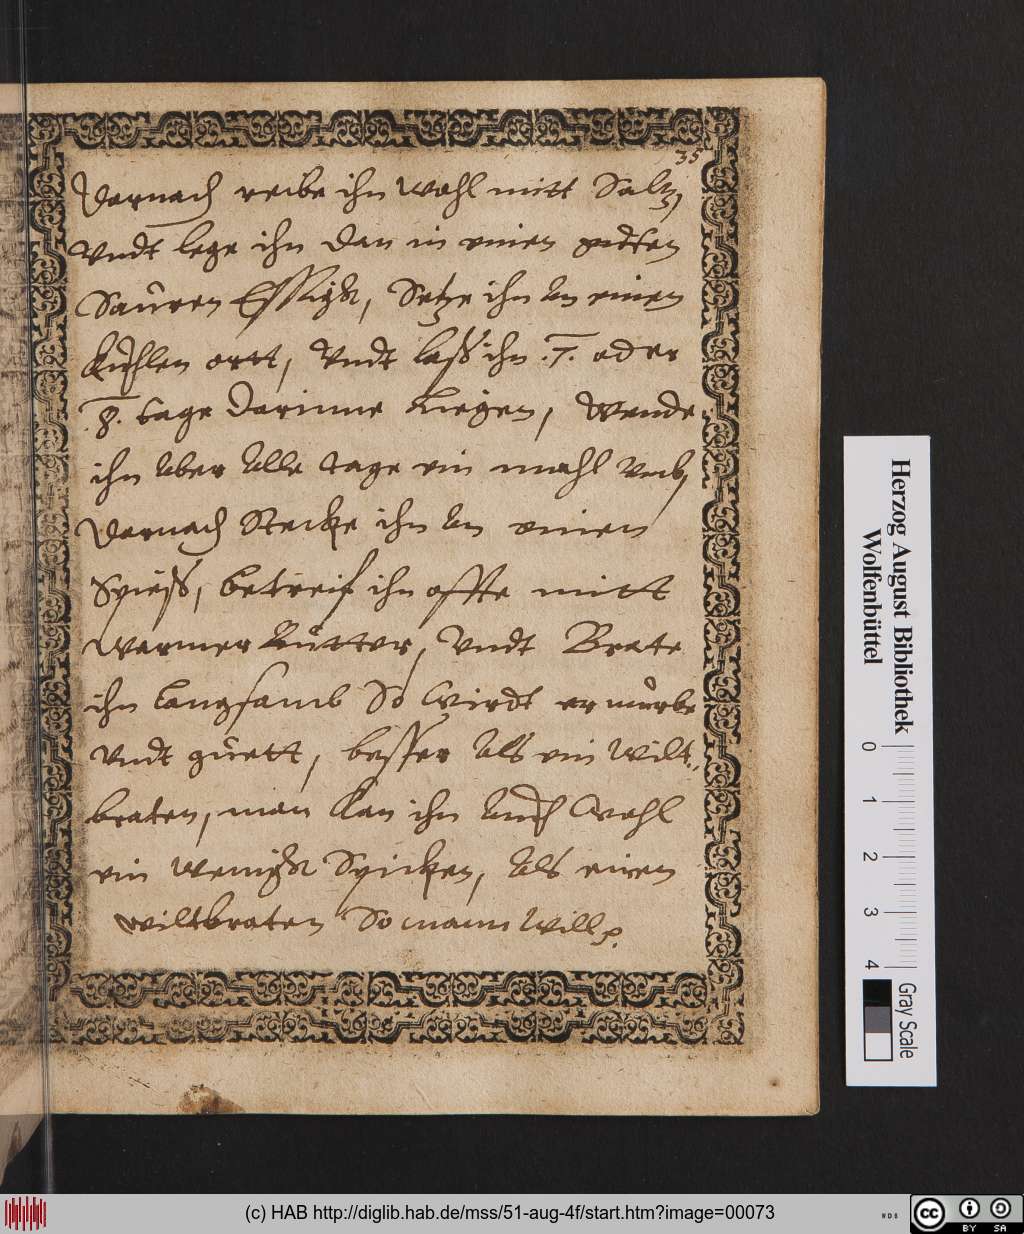 35
Darnach reibe ihn wohl mitt Saltz,
Vndt lege ihn dan in einen gudten
Saŭren Essigk, Setze ihn an einen
kuhlen ortt, Vndt laß ihn .7. oder
.8. tage darinne Liegen, Wende
ihn aber alle tage ein mahl vmb,
Darnach Stecke ihn an einen
Spieß, betreif ihn offte mitt
warmer Bŭtter, Vndt Brate
ihn langsamb So wirdt er mŭrbe
Vndt gŭett, besser als ein Wilt,,
braten, man kan ihn auch Wohl
ein wenigk Spicken, als einen
wiltbraten So mann Will p.
Herzog August Bibliothek
Wolfenbüttel
0 1 2 3 4
Gray Scale
(c) HAB http://diglib.hab.de/mss/51-aug-4f/start.htm?image=00073
WDB
cc BY SA